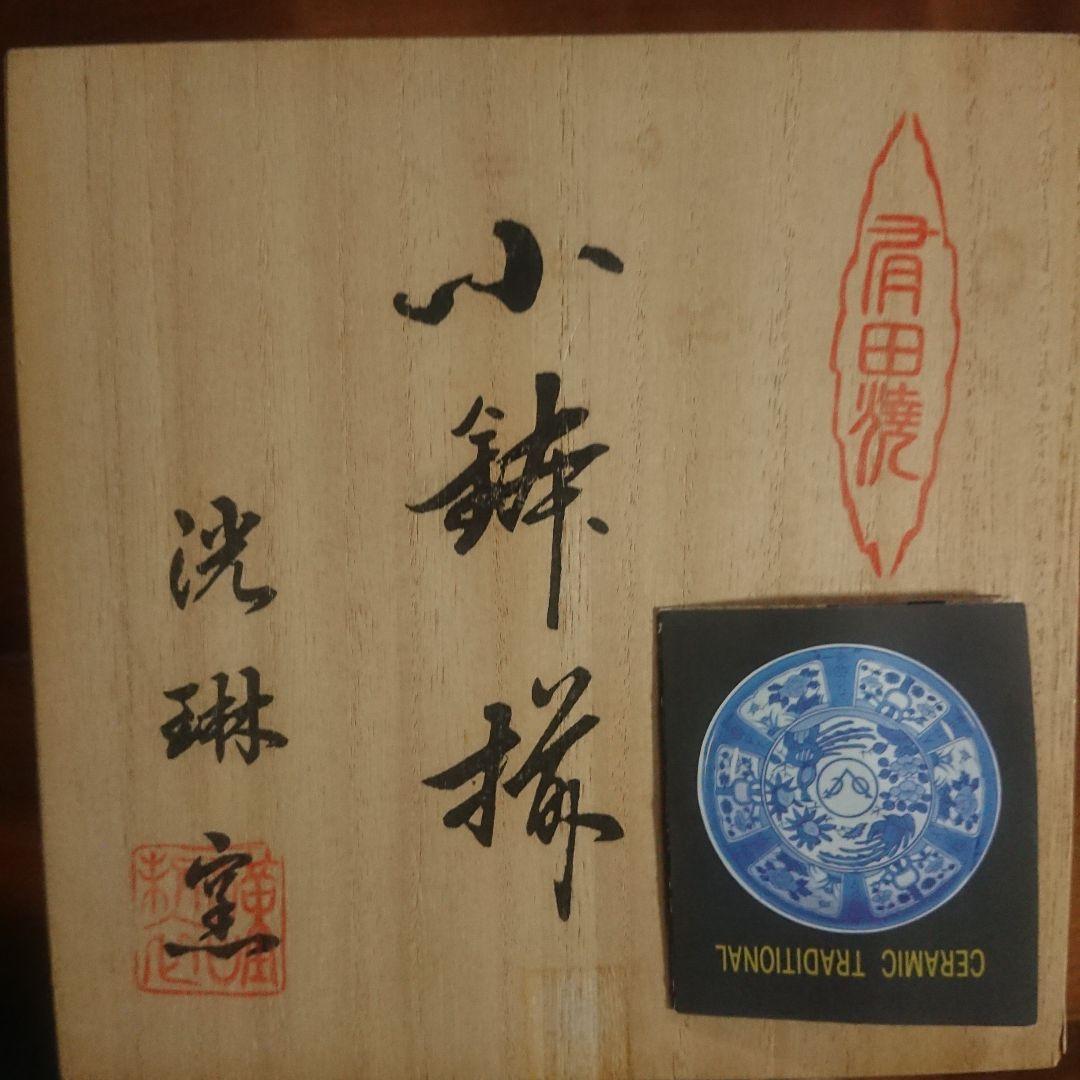 有田焼
小鉢揃
洸琳窯
CERAMIC TRADITIONAL